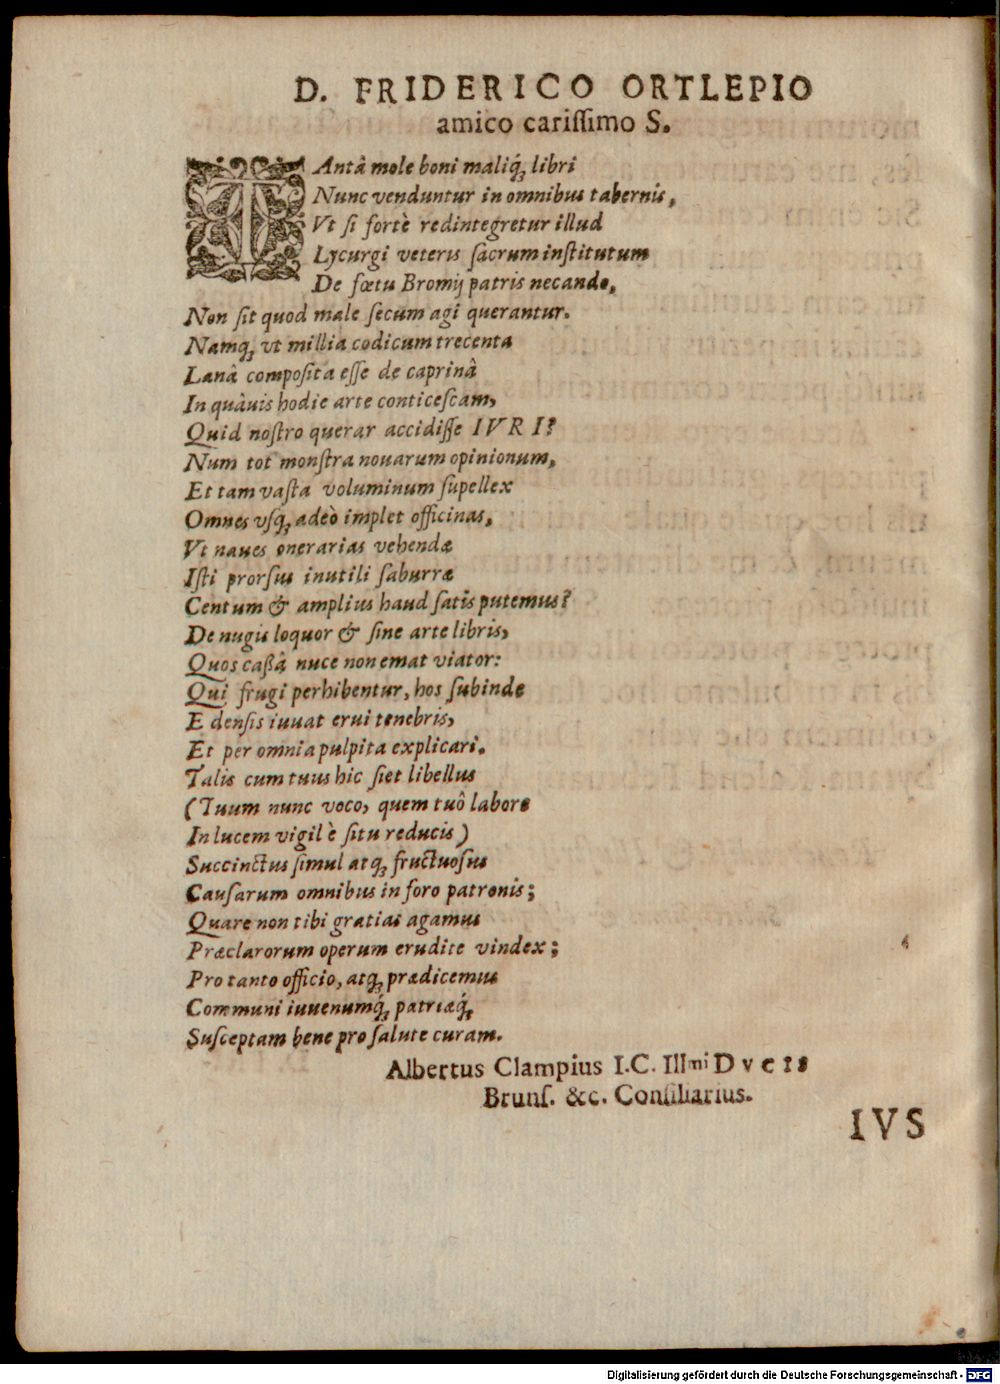 D. FRIDERICO ORTLEPIO
amico cariſſimo S.
TAntâ mole boni maliq́; libri
Nunc venduntur in omnibus tabernis,
Vt ſi fortè redintegretur illud
Lycurgi veteris ſacrum inſtitutum
De fœtu Bromij patris necando,
Non ſit quod male ſecum agi querantur.
Namq; vt millia codicum trecenta
Lanâ compoſita eſſe de caprinâ
In quâuis hodie arte conticeſcam,
Quid noſtro querar accidiſſe IVRI?
Num tot monſtra nouarum opinionum,
Et tam vaſta voluminum ſupellex
Omnes vſq; adeò implet officinas,
Vt naues onerarias vehendæ
Iſti prorſus inutili ſaburræ
Centum & amplius haud ſatis putemus?
De nugis loquor & ſine arte libris,
Quos caßâ nuce non emat viator:
Qui frugi perhibentur, hos ſubinde
E denſis iuuat erui tenebris,
Et per omnia pulpita explicari.
Talis cum tuus hic ſiet libellus
(Tuum nunc voco, quem tuô labore
In lucem vigil è ſitu reducis)
Succinctus ſimul atq; fructuoſus
Cauſarum omnibus in foro patronis;
Quare non tibi gratias agamus
Præclarorum operum erudite vindex;
Pro tanto officio, atq; prædicemus
Communi iuuenumq́; patriæq́;
Suſceptam bene pro ſalute curam.
Albertus Clampius I.C. Illmi Dvcis
Brunſ. &c. Conſiliarius.
IVS
Digitalisierung gefördert durch die Deutsche Forschungsgemeinschaft - DFG